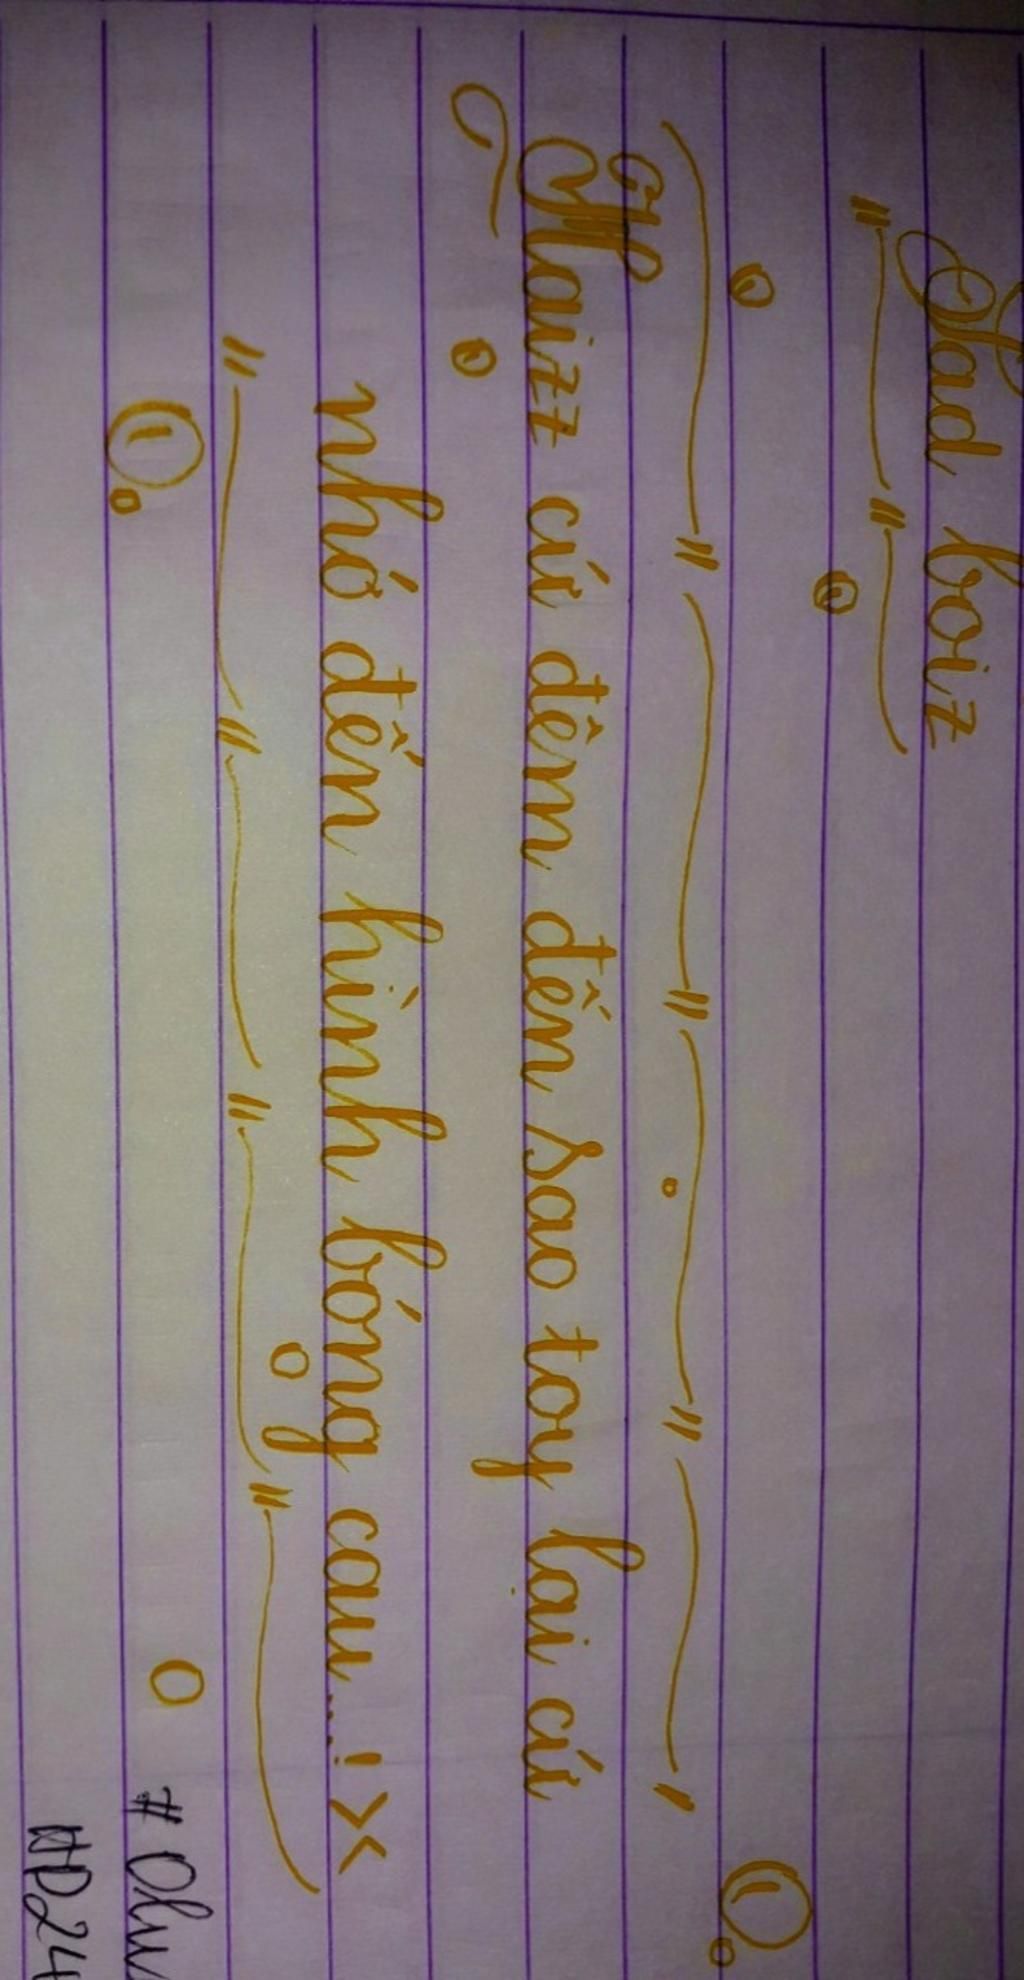 Sad boiz
Haizz cứ đêm đến sao toy lại cứ
nhớ đến hình bóng cau...! ><